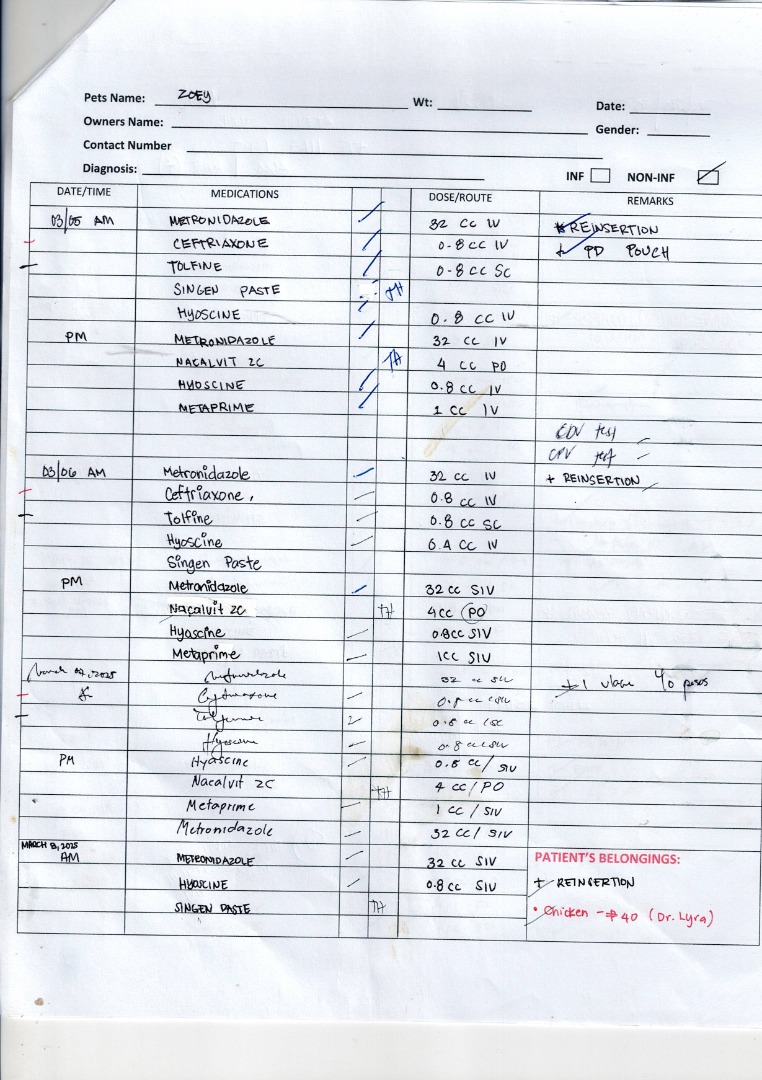 Pets Name: ZOEY Wt: Date:
Owners Name: Gender:
Contact Number
Diagnosis: INF NON-INF
DATE/TIME MEDICATIONS DOSE/ROUTE REMARKS
03/05 AM METRONIDAZOLE 32 CC IV REINSERTION
CEFTRIAXONE 0.8CC IV + PD POUCH
TOLFINE 0.8CC SC
SINGEN PASTE TH
HYOSCINE 0.8 CC IV
PM METRONIDAZOLE 32 CC IV
NACALVIT 2C TH 4 CC PO
HYOSCINE 0.8 CC IV
METAPRIME 1 CC IV
CDV test
CPV test
03/06 AM Metronidazole 32 CC IV + REINSERTION
Ceftriaxone, 0.8 CC IV
Tolfine 0.8 CC SC
Hyoscine CC IV
Singen Paste
PM Metronidazole 32 CC SIV
Nacalvit 2C TH 4CC PO
Hyoscine 0.8CC SIV
Metaprime 1CC SIV
2025 32 cc SIV +1
0.8 cc
0.8 cc
Hyoscine 0.8 cc
PM Hyoscine 0.8 CC/SIV
Nacalvit 2C TH 4 CC/PO
Metaprime 1 CC/SIV
Metronidazole 32 CC/SIV
MARCH 8, 2025
AM METRONIDAZOLE 32 CC SIV PATIENT'S BELONGINGS:
HYOSCINE 0.8CC SIV + REINSERTION
SINGEN PASTE TH • Chicken - ₱40 (Dr. Lyra)